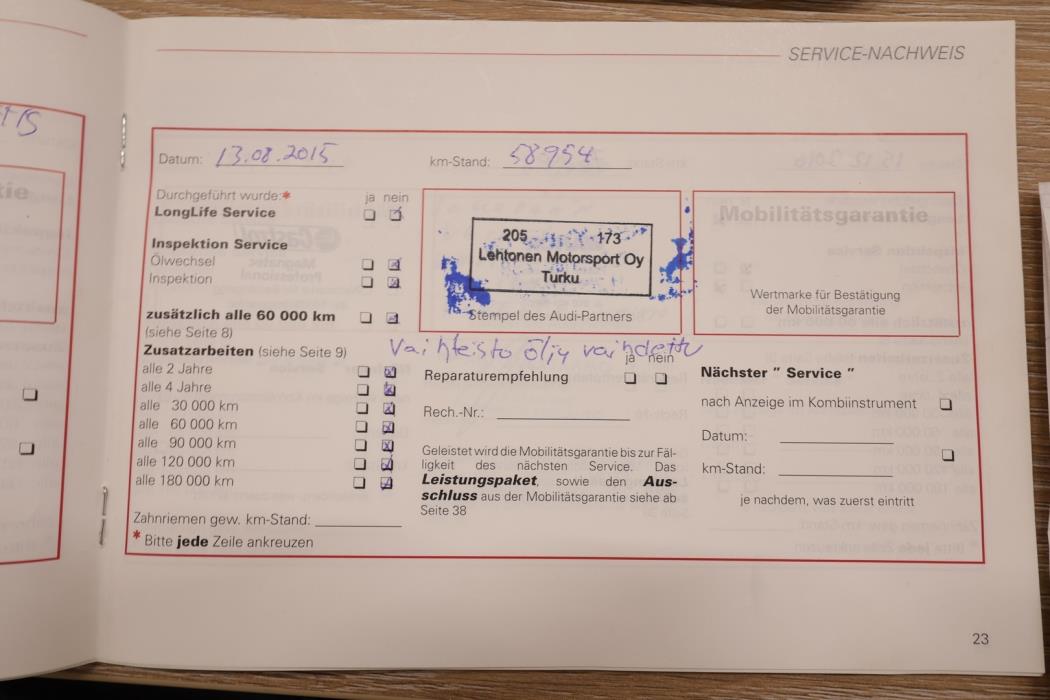 SERVICE-NACHWEIS
Datum: 13.08.2015
km-Stand: 58954
Durchgeführt wurde:* ja nein
LongLife Service
Inspektion Service
Ölwechsel
Inspektion
zusätzlich alle 60 000 km
(siehe Seite 8)
Zusatzarbeiten (siehe Seite 9)
alle 2 Jahre
alle 4 Jahre
alle 30 000 km
alle 60 000 km
alle 90 000 km
alle 120 000 km
alle 180 000 km
Zahnriemen gew. km-Stand:
* Bitte jede Zeile ankreuzen
205 173
Lehtonen Motorsport Oy
Turku
Stempel des Audi-Partners
Vaihteisto öljy vaihdettu
ja nein
Reparaturempfehlung
Rech.-Nr.:
Geleistet wird die Mobilitätsgarantie bis zur Fäl-
ligkeit des nächsten Service. Das
Leistungspaket, sowie den Aus-
schluss aus der Mobilitätsgarantie siehe ab
Seite 38
Mobilitätsgarantie
Wertmarke für Bestätigung
der Mobilitätsgarantie
Nächster " Service "
nach Anzeige im Kombiinstrument
Datum:
km-Stand:
je nachdem, was zuerst eintritt
23